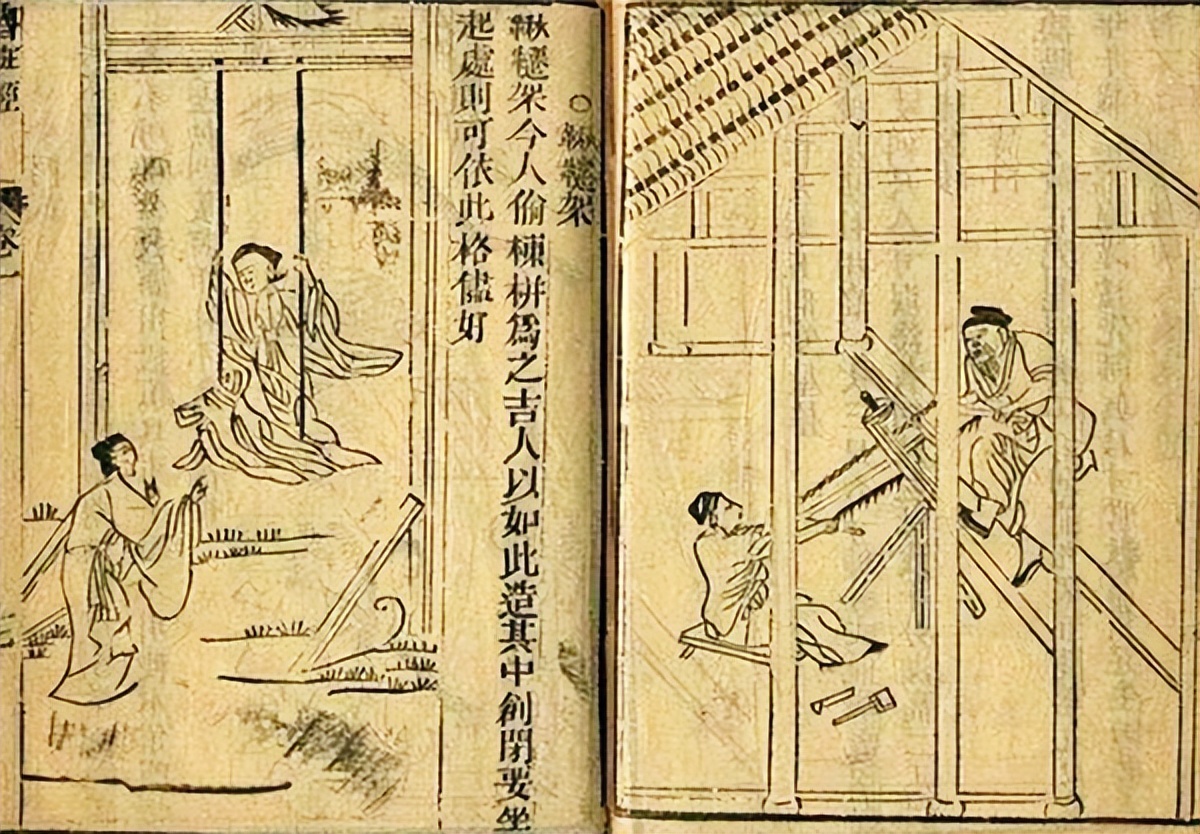 ○鞦韆架
鞦韆架今人偷棟栟爲之吉人以如此造其中創閉要坐
起處則可依此格儘好
魯班經
卷一